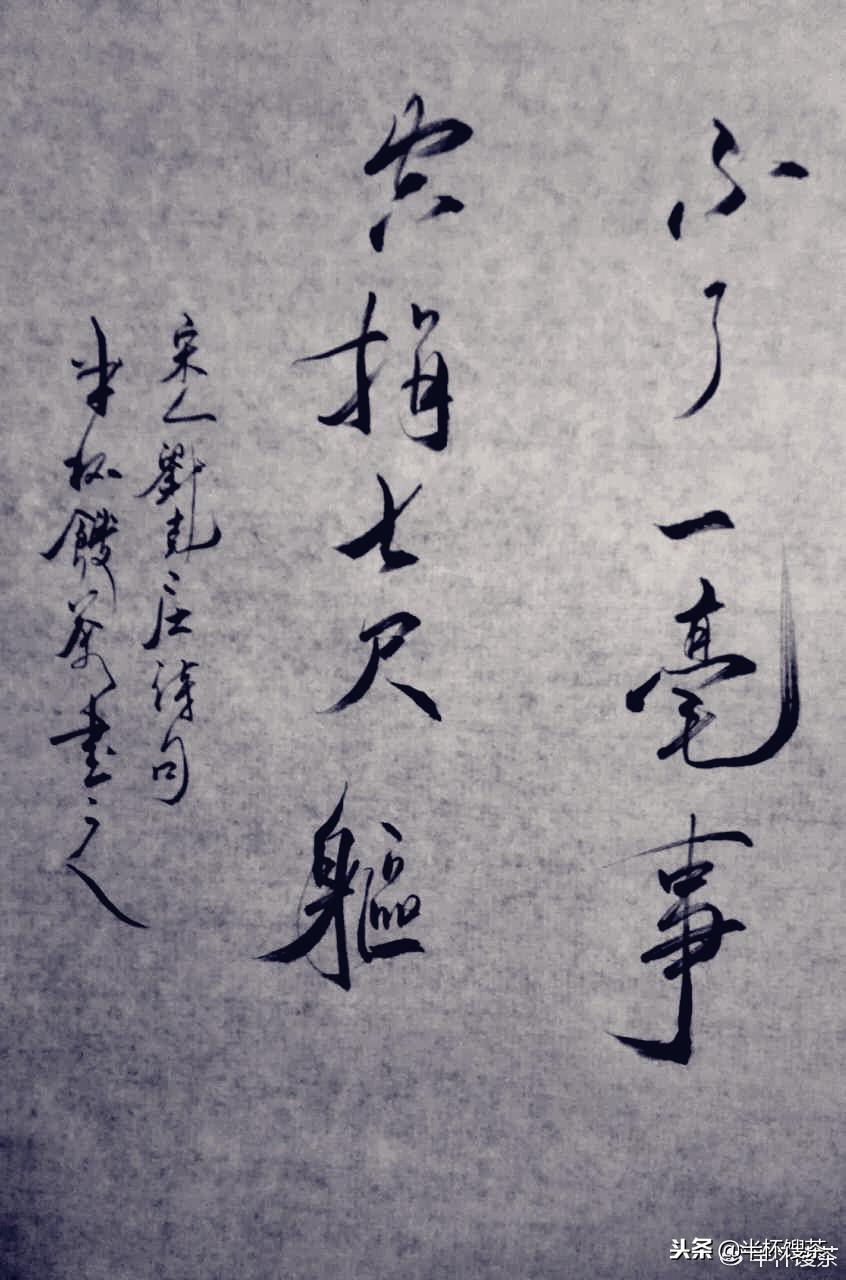 不了一毫事
捐七尺軀
宋人劉克庄詩句
半杯餿茶書之
头条 @半杯馊茶
@半杯馊茶